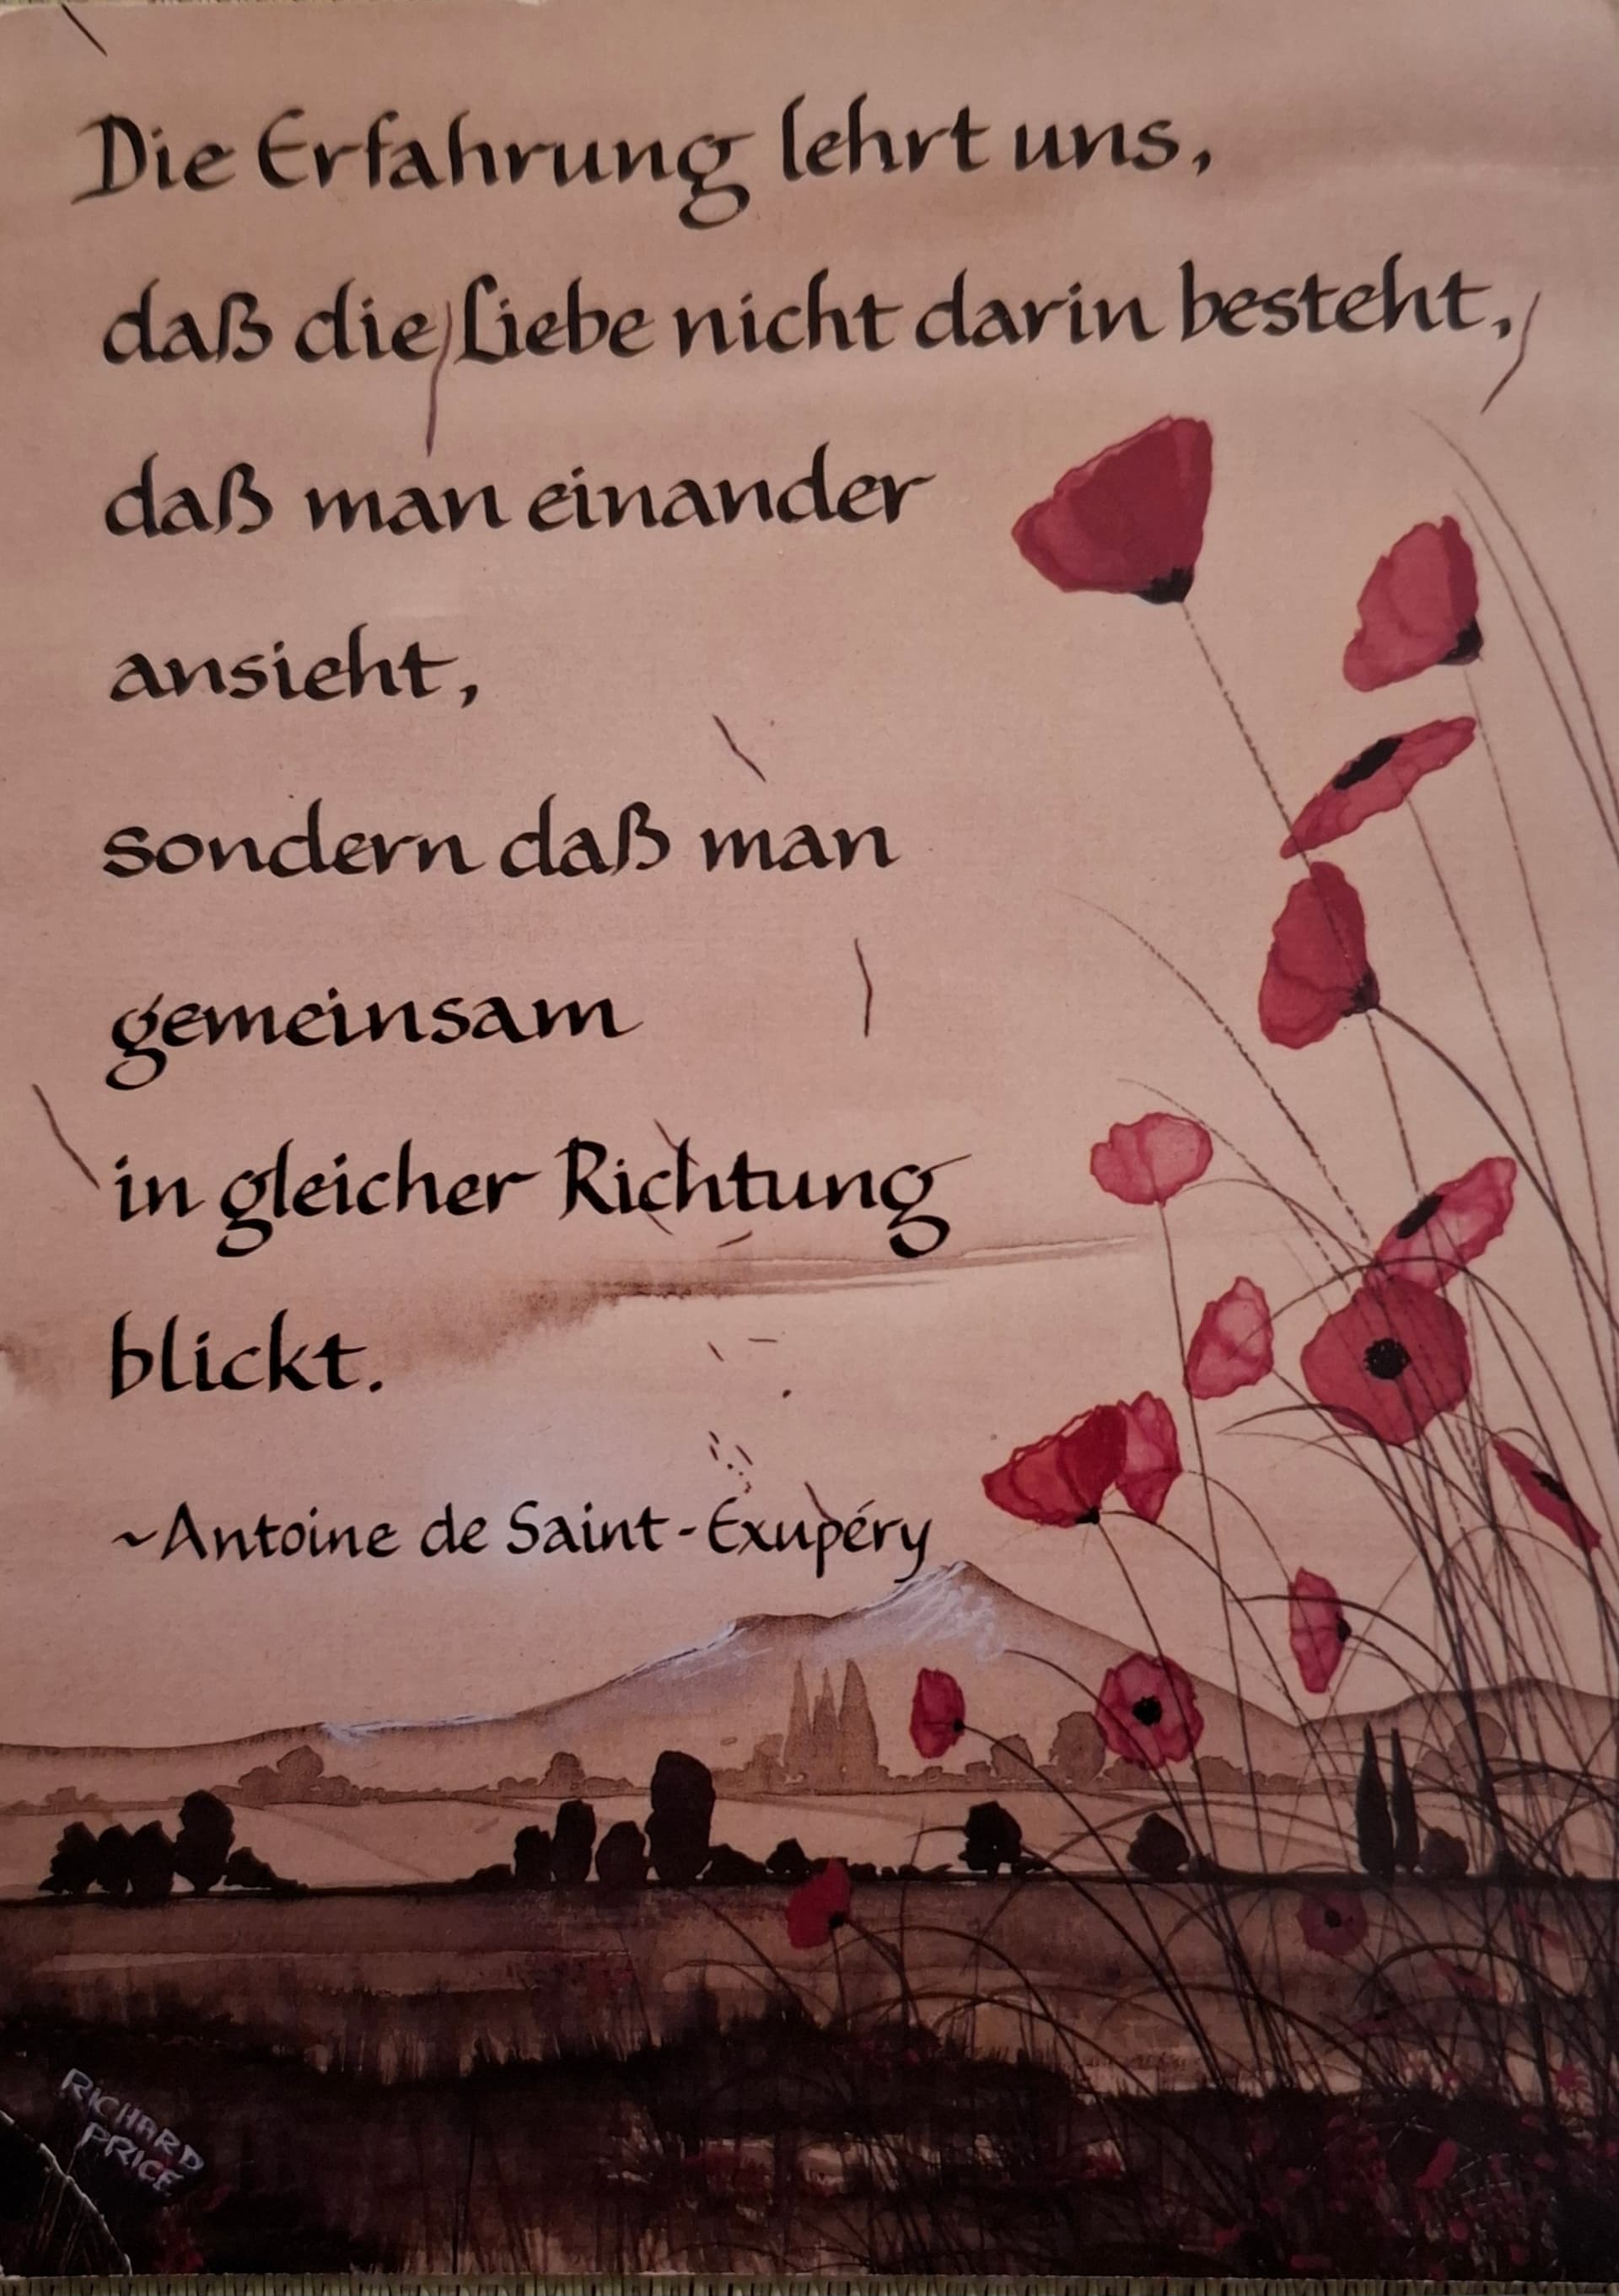 Die Erfahrung lehrt uns,
daß die Liebe nicht darin besteht,
daß man einander
ansieht,
sondern daß man
gemeinsam
in gleicher Richtung
blickt.
~Antoine de Saint-Exupéry
RICHARD
PRICE